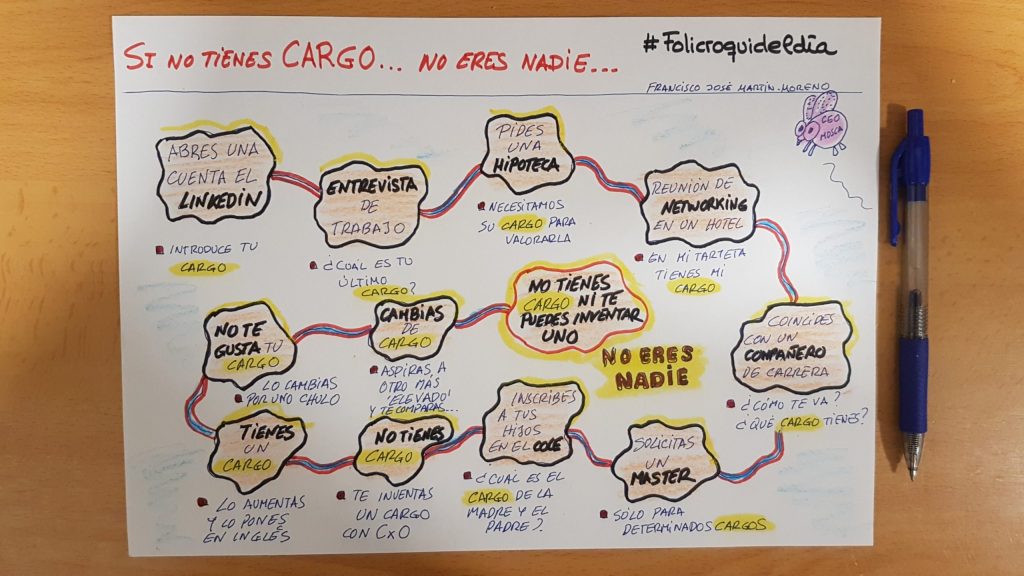 SI NO TIENES CARGO... NO ERES NADIE...
#Folicroquideldía
FRANCISCO JOSÉ MARTÍN-MORENO
CEO
MOSCA
ABRES UNA
CUENTA EL
LINKEDIN
INTRODUCE TU
CARGO
ENTREVISTA
DE
TRABAJO
¿CUÁL ES TU
ÚLTIMO
CARGO?
PIDES
UNA
HIPOTECA
NECESITAMOS
SU CARGO PARA
VALORARLA
REUNIÓN DE
NETWORKING
EN UN HOTEL
EN MI TARJETA
TIENES MI
CARGO
COINCIDES
CON UN
COMPAÑERO
DE CARRERA
¿CÓMO TE VA?
¿QUÉ CARGO TIENES?
SOLICITAS
UN
MASTER
SÓLO PARA
DETERMINADOS CARGOS
INSCRIBES
A TUS
HIJOS
EN EL COLE
¿CUÁL ES EL
CARGO DE LA
MADRE Y EL
PADRE?
NO TIENES
CARGO
TE INVENTAS
UN CARGO
CON CxO
TIENES
UN
CARGO
LO AUMENTAS
Y LO PONES
EN INGLÉS
NO TE
GUSTA TU
CARGO
LO CAMBIAS
POR UNO CHULO
CAMBIAS
DE
CARGO
ASPIRAS A
OTRO MÁS
'ELEVADO'
Y TE COMPARAS...
NO TIENES
CARGO NI TE
PUEDES INVENTAR
UNO
NO ERES
NADIE